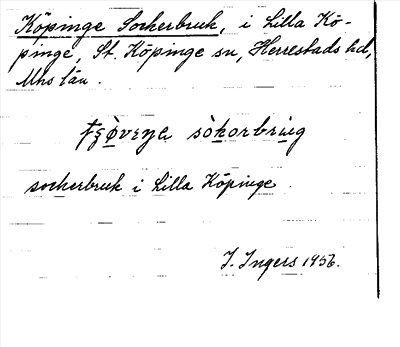 Köpinge Sockerbruk, i Lilla Kö-
pinge, St. Köpinge sn, Herrestads hd,
Mhs län.
sòkorbrug
sockerbruk i Lilla Köpinge.
I. Ingers 1956.